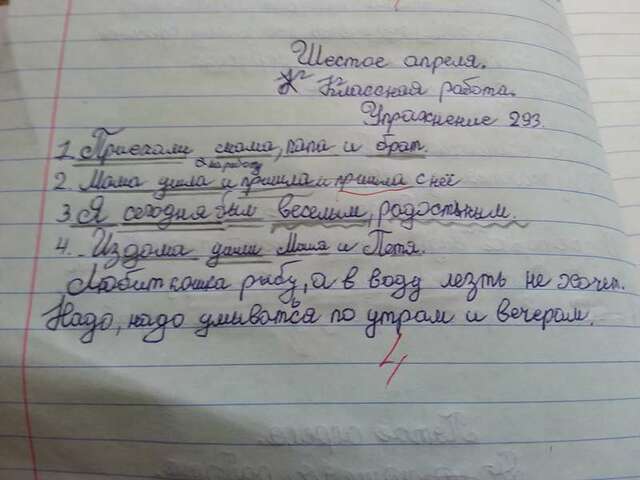 Шестое апреля.
Классная работа.
Упражнение 293.
1. Приехали мама, папа и брат.
на работу
2. Мама ушла и пришла и пришла с неё
3. Я сегодня был веселым, радостным.
4. Из дома ушли Маша и Петя.
Любит кошка рыбу, а в воду лезть не хочет.
Надо, надо умыватся по утрам и вечерам.
4